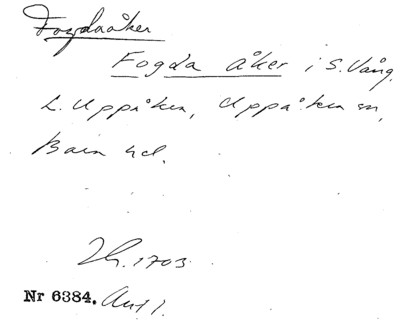 Fogdaåker
Fogda åker i S. Vång.
L. Uppåkra, Uppåkra sn,
Bara hd.
Lh. 1703
Nr 6384. Avt 1.